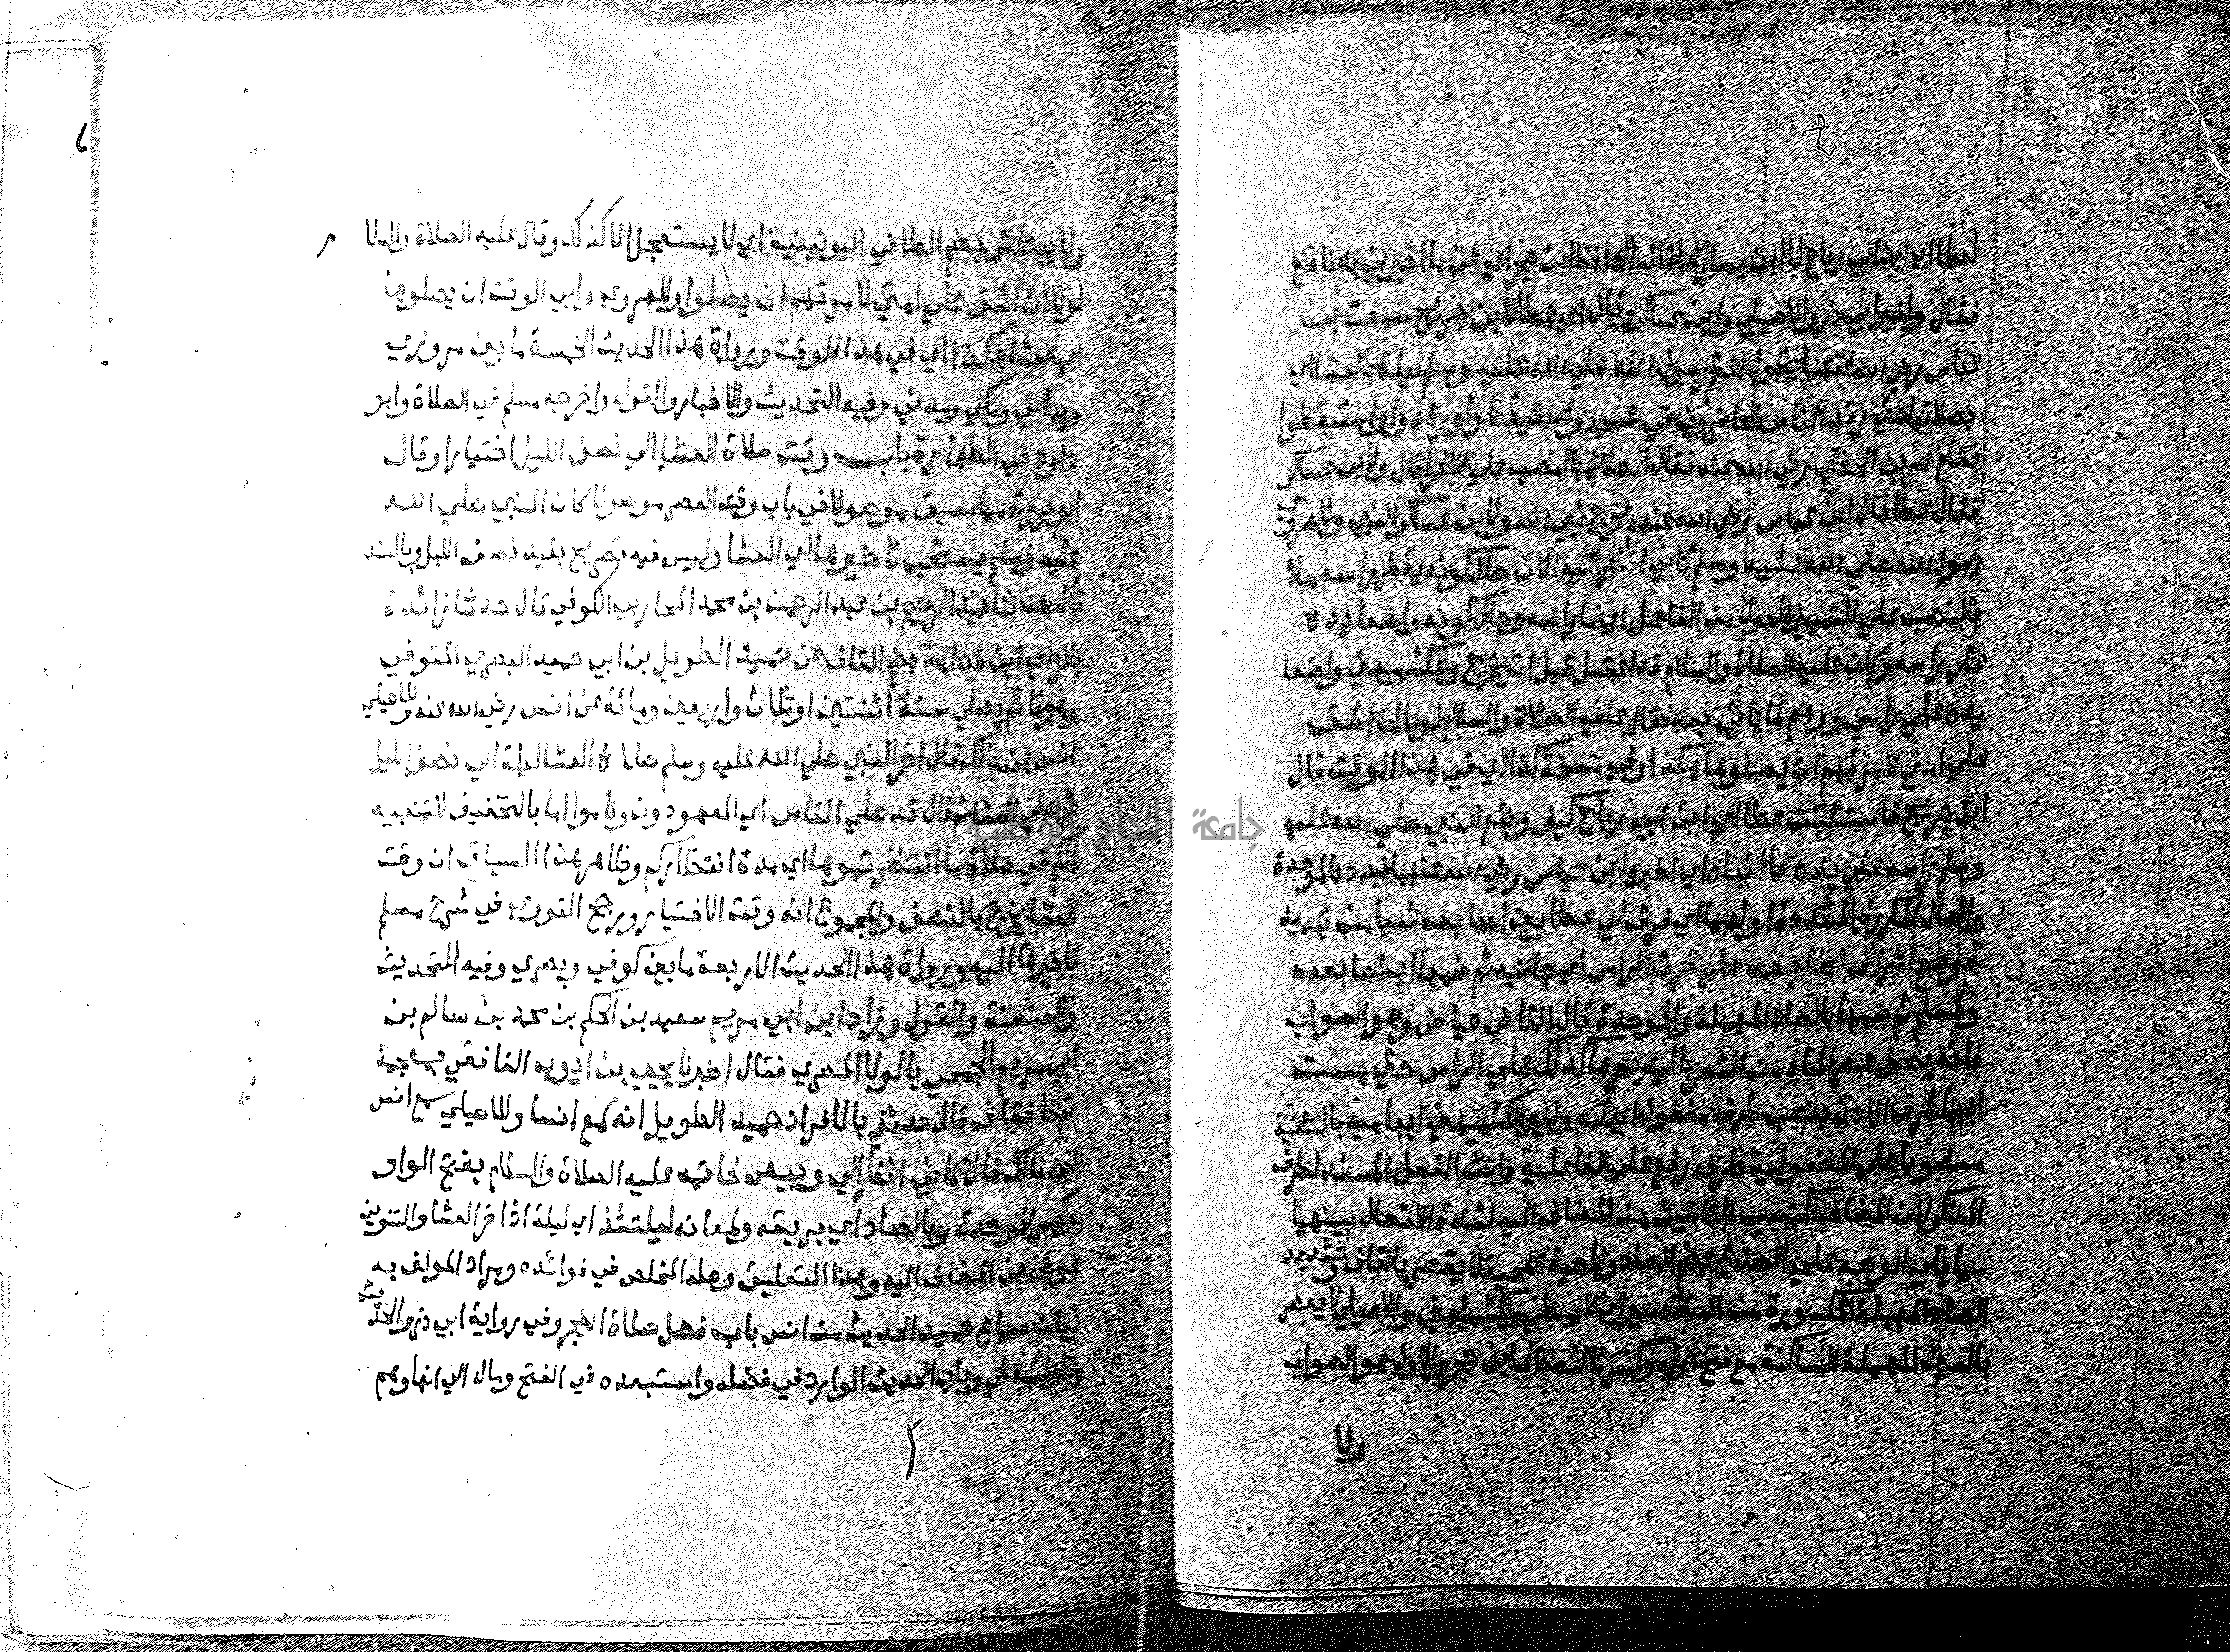 لعطا اي ابن ابي رباح لا ابن يسار كما قاله الحافظ ابن حجر اي عن ما اخبرني به نافع
فقال ولغير ابي ذر والاصيلي وابن عساكر وقال اي عطا لابن جريج سمعت بن
عباس رضي الله عنهما يقول اعتم رسول الله صلي الله عليه وسلم ليلة بالعشا اي
بصلاتها حتي رقد الناس الحاضرون في المسجد واستيقظوا ورقدوا واستيقظوا
فقام عمر بن الخطاب رضي الله عنه فقال الصلاة بالنصب علي الاغرا قال ولابن عساكر
فقال عطا قال ابن عباس رضي الله عنهم فخرج نبي الله ولابن عساكر النبي وللهروي
رسول الله صلي الله عليه وسلم كاني انظر اليه الان حال كونه يقطر راسه ماء
بالنصب علي التمييز المحول من الفاعل اي ما راسه وحال كونه واضعا يده
علي راسه وكان عليه الصلاة والسلام قد اغتسل قبل ان يخرج وللكشميهني واضعا
يده علي راسي ووهم لما ياتي بعد فقال عليه الصلاة والسلام لولا ان اشق
علي امتي لامرتهم ان يصلوها هكذا وفي نسخة كذا اي في هذا الوقت قال
ابن جريج فاستثبت عطا اي ابن ابي رباح كيف وضع النبي صلي الله عليه
وسلم راسه علي يده كما انباه اي اخبره ابن عباس رضي الله عنهما فبدد بالموحدة
والدال المكررة المشددة اولهما اي فرق لي عطا بين اصابعه شيا من تبديد
ثم وضع اطراف اصابعه علي قرن الراس اي جانبه ثم ضمها اي اصابعه
ولمسلم ثم صبها بالصاد المهملة والموحدة قال القاضي عياض وهو الصواب
فانه يصف عصر الماء من الشعر باليد يمرها كذلك علي الراس حتي مست
ابهامه طرف الاذن بنصب طرف مفعول ابهامه ولغير الكشميهني ابهاميه بالتثنية
منصوبا علي المفعولية طرف رفع علي الفاعلية وانث الفعل المسند لطرف
المذكر لان المضاف اكتسب التانيث من المضاف اليه لشدة الاتصال بينهما
مما يلي الوجه علي الصدغ بضم الصاد وناحية اللحية لا يقصر بالقاف وتشديد
الصاد المهملة المكسورة من التقصير اي لا يبطي وللكشميهني والاصيلي لا يعصر
بالعين المهملة الساكنة مع فتح اوله وكسر ثالثه قال ابن حجر والاول هو الصواب
ولا
ولا يبطش بضم الطا في اليونينية اي لا يستعجل الا كذلك وقال عليه الصلاة والسلا
لولا ان اشق علي امتي لامرتهم ان يصلوا وللهروي وابي الوقت ان يصلوها
اي العشا هكذا اي في هذا الوقت ورواة هذا الحديث الخمسة ما بين مروزي
ويماني ومكي ومدني وفيه التحديث والاخبار والقول واخرجه مسلم في الصلاة وابو
داود في الطهارة باب وقت صلاة العشا الي نصف الليل اختيارا وقال
ابو برزة مما سبق موصولا في باب وقت العصر موصولا كان النبي صلي الله
عليه وسلم يستحب تاخيرها اي العشا وليس فيه تصريح بقيد نصف الليل وبالسند
قال حدثنا عبد الرحيم بن عبد الرحمن بن محمد المحاربي الكوفي قال حدثنا زائدة
بالزاي ابن قدامة بضم القاف عن حميد الطويل بن ابي حميد البصري المتوفي
وهو قائم يصلي سنة اثنتين او ثلاث واربعين ومائة عن انس رضي الله عنه وللاصيلي
انس بن مالك قال اخر النبي صلي الله عليه وسلم صلاة العشا ليلة الي نصف الليل
ثم صلي العشا ثم قال قد صلي الناس اي المعهودون وناموا اما بالتخفيف للتنبيه
انكم في صلاة ما انتظرتموها اي مدة انتظاركم وظاهر هذا السياق ان وقت
العشا يخرج بالنصف والمجموع انه وقت الاختيار ورجح النووي في شرح مسلم
تاخيرها اليه ورواة هذا الحديث الاربعة ما بين كوفي وبصري وفيه التحديث
والعنعنة والقول وزاد ابن ابي مريم سعيد بن الحكم بن محمد بن سالم بن
ابي مريم الجمحي بالولا المصري فقال اخبرنا يحيي بن ايوب الغافقي بمعجمة
ثم فا فقاف قال حدثني بالافراد حميد الطويل انه سمع انسا وللاصيلي سمع انس
ابن مالك قال كاني انظر الي وبيص خاتمه عليه الصلاة والسلام بفتح الواو
وكسر الموحدة وبالصاد اي بريقه ولمعانه ليلتئذ اي ليلة اذ اخر العشا والتنوين
عوض عن المضاف اليه وهذا التعليق وصله المخلص في فوائده ومراد المولف به
بيان سماع حميد الحديث من انس باب فضل صلاة الفجر وفي رواية ابي ذر والحديث
وتاولت علي وباب الحديث الوارد في فضله واستبعده في الفتح ومال الي انها وهم